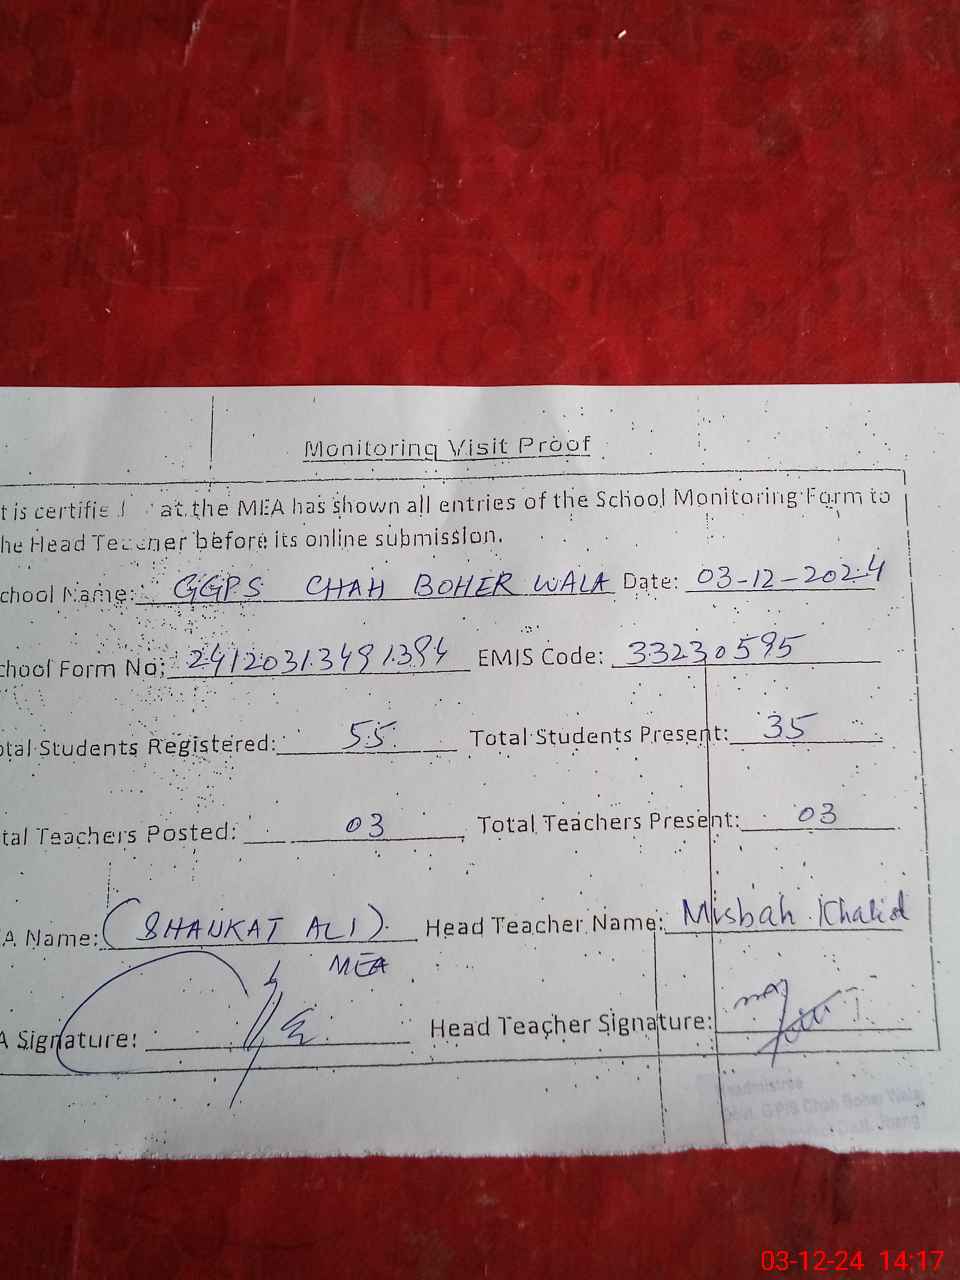 Monitoring Visit Proof
t is certifie at the MEA has shown all entries of the School Monitoring Form to
he Head Teacher before its online submission.
chool Name: GGPS CHAH BOHER WALA Date: 03-12-2024
chool Form No: 24120313491394 EMIS Code: 33230595
otal Students Registered: 55 Total Students Present: 35
tal Teachers Posted: 03 Total Teachers Present: 03
A Name: (SHAUKAT ALI) Head Teacher Name: Misbah Khalid
MEA
A Signature: Head Teacher Signature:
Headmistress
Govt. G P/S Chah Boher Wala
Jhang
03-12-24 14:17